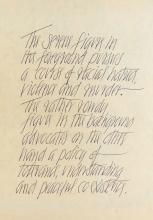 The serene figure in
the foreground pursues
a course of racial hatred,
violence and murder—
The rather rowdy
figure in the background
advocates on the other
hand a policy of
tolerance, understanding
and peaceful coexistence.